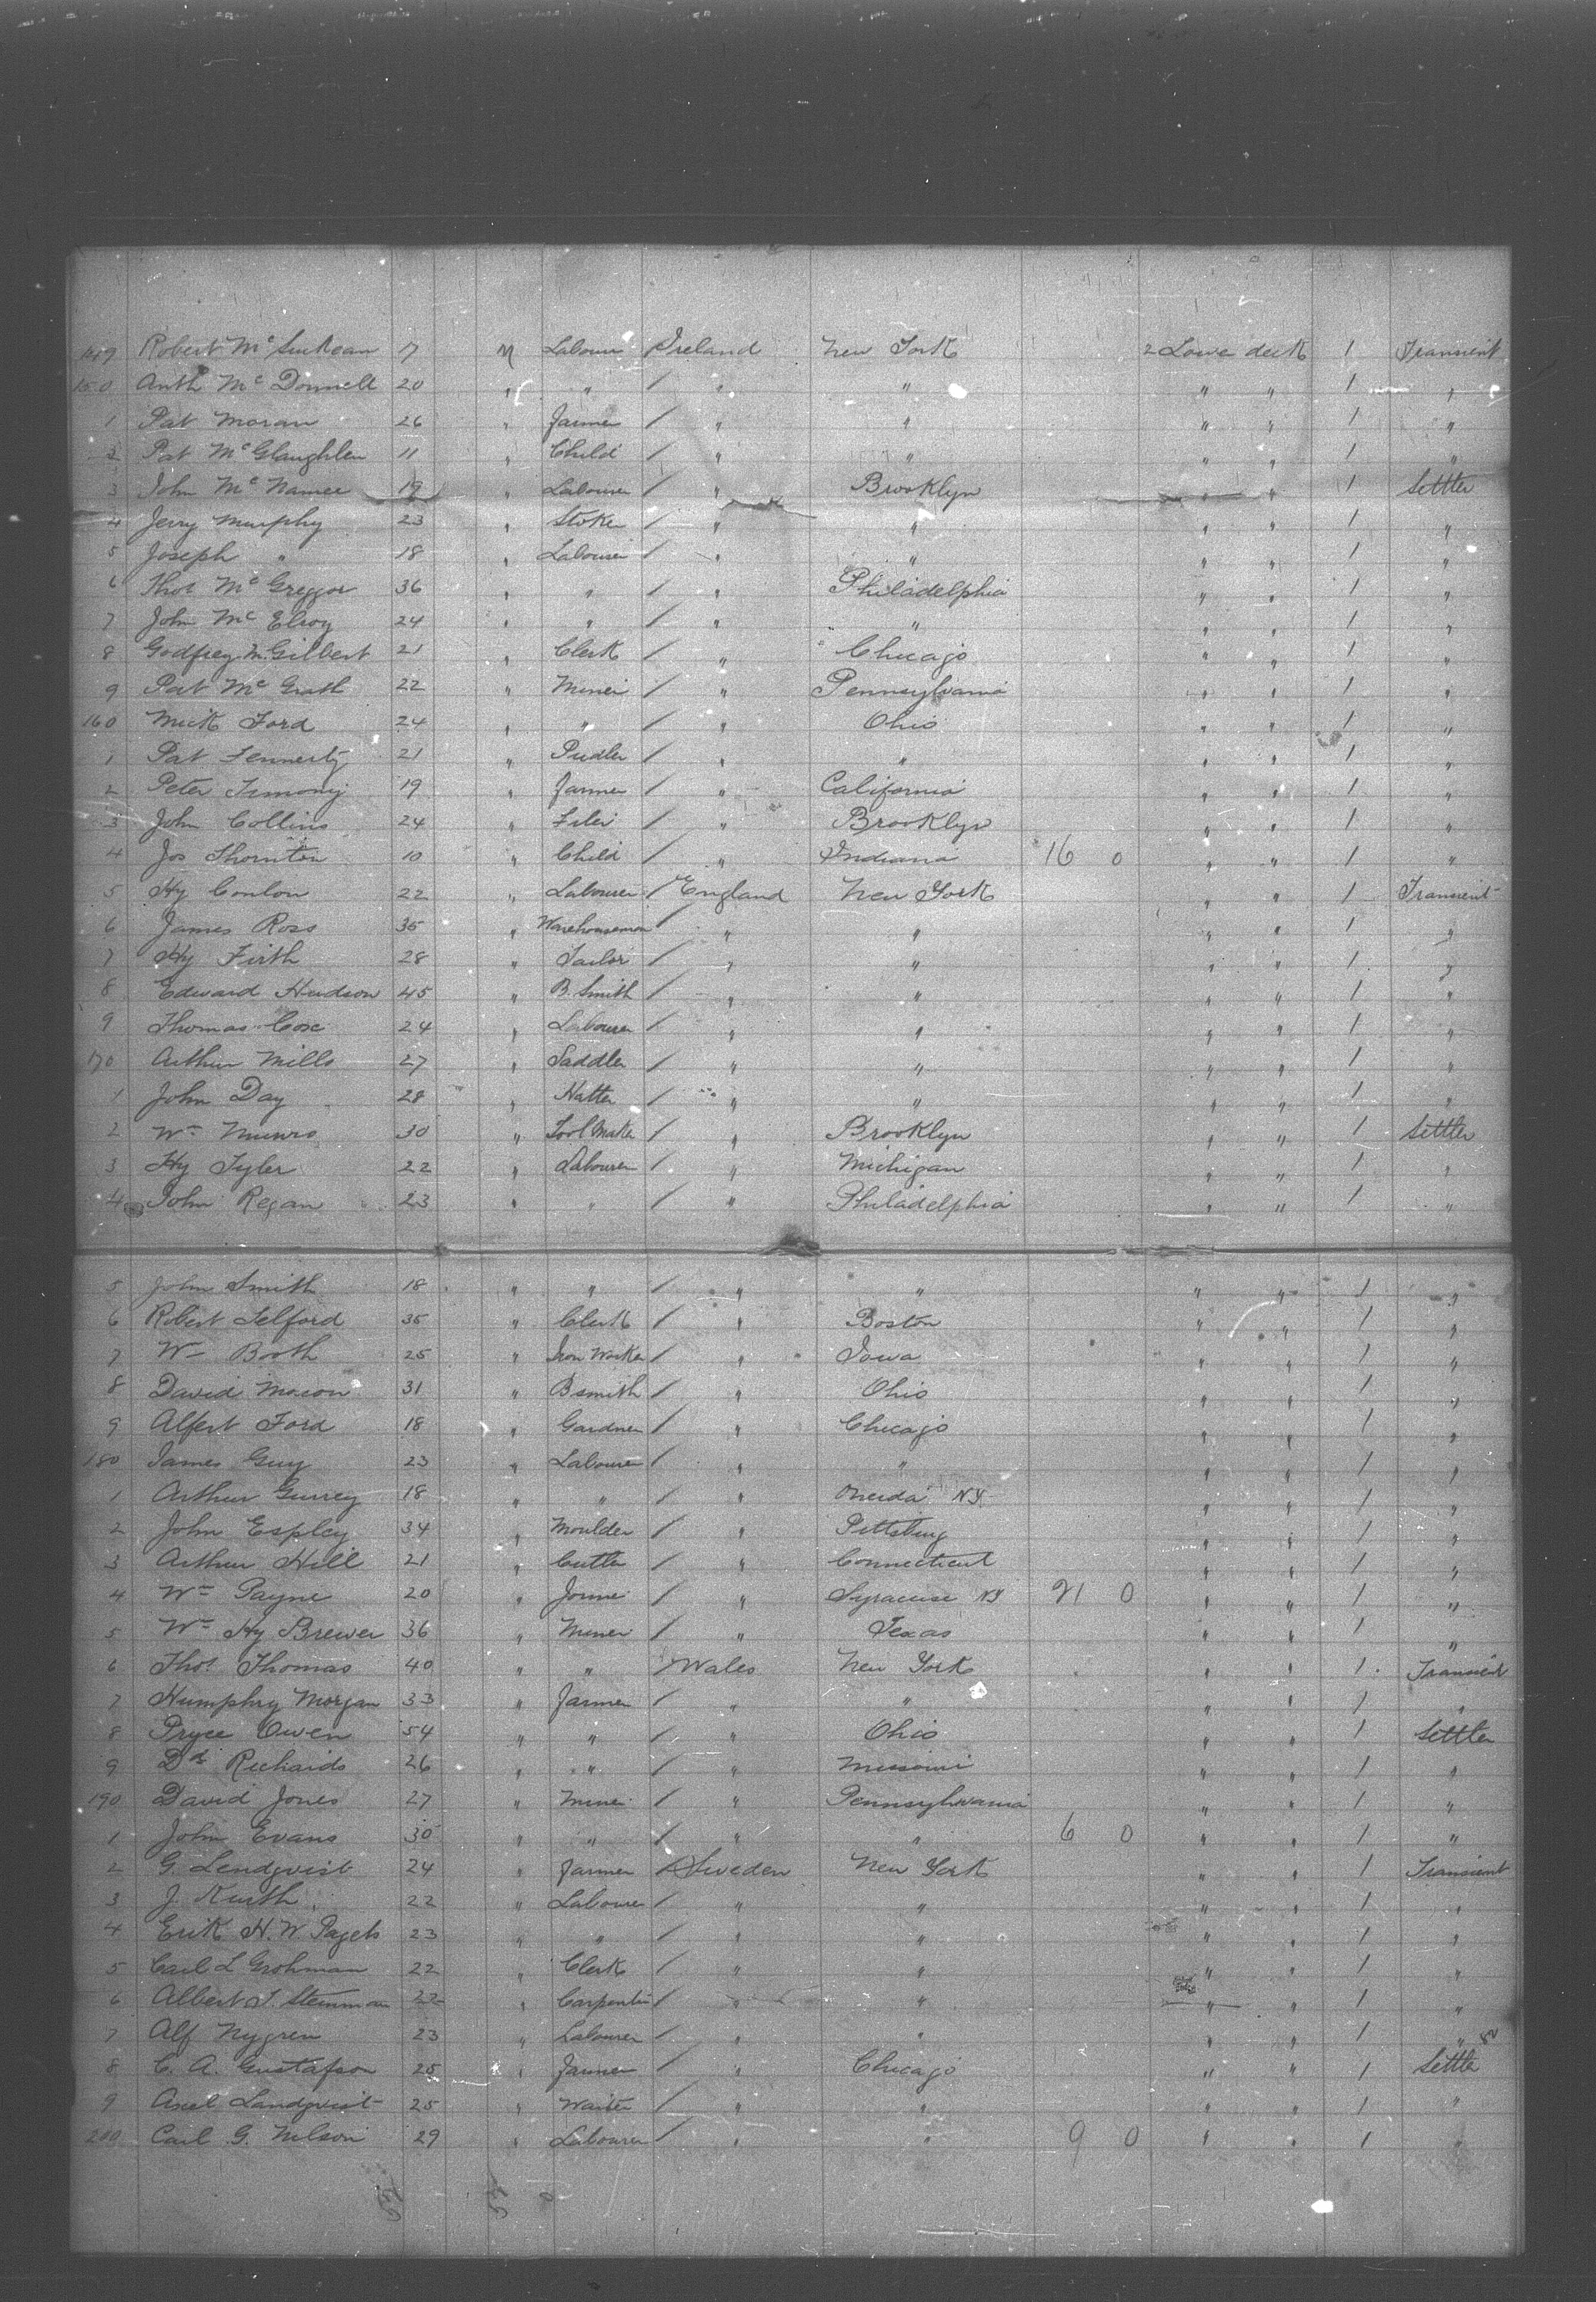 149 Robert Mc 17 M Labourer / Ireland New York 2 Lowe deck 1 Transient
150 Anth Mc Donnell 20 " " / " " " " 1 "
1 Pat Moran 26 " Farmer / " " " " 1 "
2 Pat McGlaughlen 11 " Child / " " " " 1 "
3 John McNamee 19 " Labourer / " Brooklyn " " 1 Settler
4 Jerry Murphy 23 " Stoker / " " " " 1 "
5 Joseph " 18 " Labourer / " " " " 1 "
6 Thos McGreggor 36 " " / " Philadelphia " " 1 "
7 John McElroy 24 " " / " " " " 1 "
8 Godfrey M. Gilbert 21 " Clerk / " Chicago " " 1 "
9 Pat McGrath 22 " Miner / " Pennsylvania " " 1 "
160 Mick Ford 24 " " / " Ohio " " 1 "
1 Pat Fennerty 21 " Pudler / " " " " 1 "
2 Peter Timony 19 " Farmer / " California " " 1 "
3 John Collins 24 " Filer / " Brooklyn " " 1 "
4 Jos Thornton 10 " Child / " Indiana 16 0 " " 1 "
5 Hy Conlon 22 " Labourer / England New York " " 1 Transient
6 James Ross 35 " Warehouseman / " " " " 1 "
7 Hy Firth 28 " Tailor / " " " " 1 "
8 Edward Hudson 45 " B. Smith / " " " " 1 "
9 Thomas Cox 24 " Labourer / " " " " 1 "
170 Arthur Mills 27 " Saddler / " " " " 1 "
1 John Day 28 " Hatter / " " " " 1 "
2 Wm Munro 30 " Tool Maker / " Brooklyn " " 1 Settler
3 Hy Tyler 22 " Labourer / " Michigan " " 1 "
4 John Regan 23 " " / " Philadelphia " " 1 "
5 John Smith 18 " " / " " " " 1 "
6 Robert Telford 35 " Clerk / " Boston " " 1 "
7 Wm Booth 25 " Iron Worker / " Iowa " " 1 "
8 David Mason 31 " Bsmith / " Ohio " " 1 "
9 Alfert Ford 18 " Gardner / " Chicago " " 1 "
180 James Guy 23 " Labourer / " " " " 1 "
1 Arthur Gurrey 18 " " / " Oneida NY " " 1 "
2 John Espley 34 " Moulder / " Pittsburg " " 1 "
3 Arthur Hill 21 " Cutler / " Connecticut " " 1 "
4 Wm Payne 20 " Joiner / " Syracuse NY 21 0 " " 1 "
5 Wm Hy Brewer 36 " Miner / " Texas " " 1 "
6 Thos Thomas 40 " " / Wales New York " " 1 Transient
7 Humphry Morgan 33 " Farmer / " " " " 1 "
8 Pryce Owen 54 " " / " Ohio " " 1 Settler
9 Dd Richards 26 " " / " Missouri " " 1 "
190 David Jones 27 " Miner / " Pennsylvania " " 1 "
1 John Evans 30 " " / " " 6 0 " " 1 "
2 G. Lendqvist 24 " Farmer / Sweden New York " " 1 Transient
3 J. Kurth 22 " Labourer / " " " " 1 "
4 Erik H. W. 23 " " / " " " " 1 "
5 Carl L Grohman 22 " Clerk / " " " " 1 "
6 Albert J. Stemman 22 " Carpenter / " " " " 1 "
7 Alf Nygren 23 " Labourer / " " " " 1 "
8 C. A. Gustafson 25 " Farmer / " Chicago " " 1 Settler
9 Axel Landqvist 25 " Waiter / " " " " 1 "
200 Carl G. Nelson 29 " Labourer / " " 9 0 " " 1 "